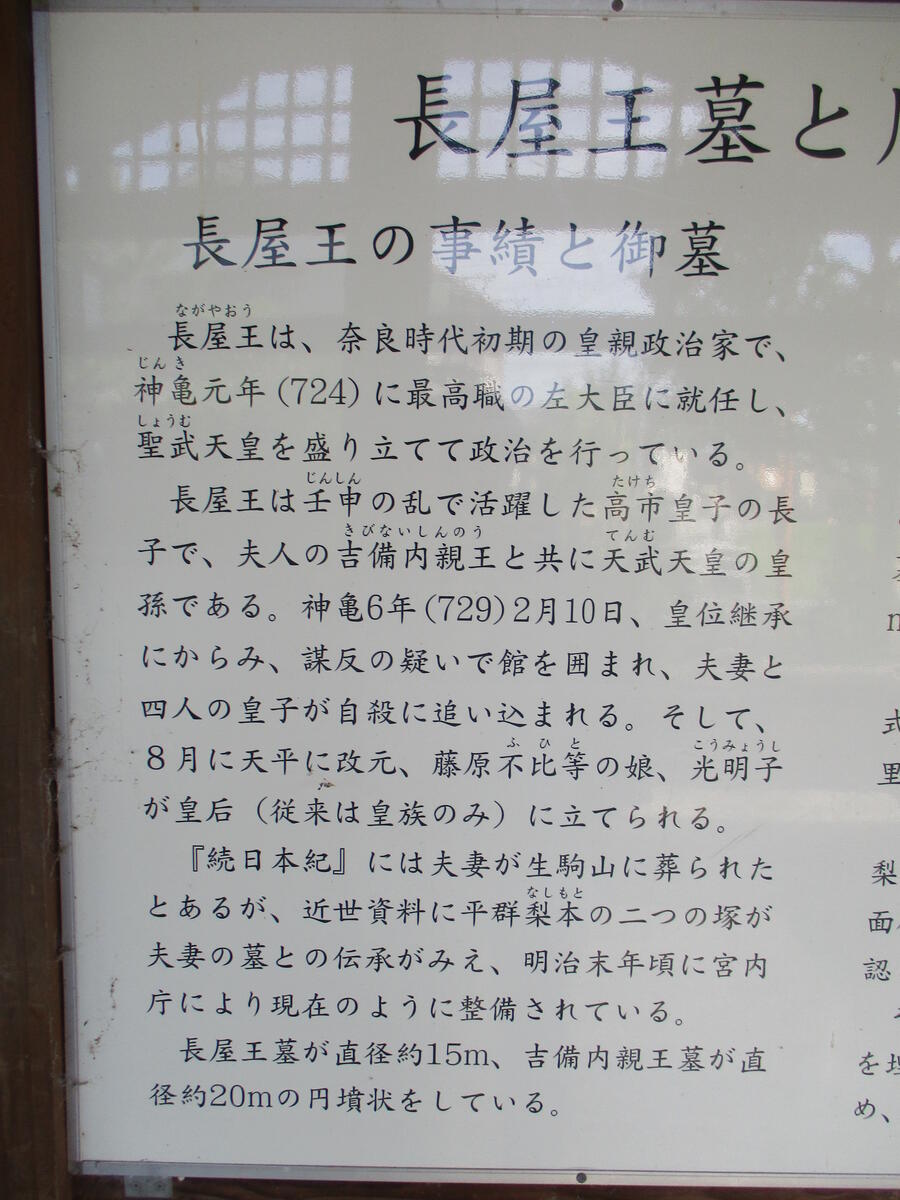 長屋王墓と
長屋王の事績と御墓
ながやおう
長屋王は、奈良時代初期の皇親政治家で、
じんき
神亀元年(724)に最高職の左大臣に就任し、
しょうむ
聖武天皇を盛り立てて政治を行っている。
じんしん たけち
長屋王は壬申の乱で活躍した高市皇子の長
きびないしんのう てんむ
子で、夫人の吉備内親王と共に天武天皇の皇
孫である。神亀6年(729)2月10日、皇位継承
にからみ、謀反の疑いで館を囲まれ、夫妻と
四人の皇子が自殺に追い込まれる。そして、
ふひと こうみょうし
8月に天平に改元、藤原不比等の娘、光明子
が皇后（従来は皇族のみ）に立てられる。
『続日本紀』には夫妻が生駒山に葬られた
なしもと
とあるが、近世資料に平群梨本の二つの塚が
夫妻の墓との伝承がみえ、明治末年頃に宮内
庁により現在のように整備されている。
長屋王墓が直径約15m、吉備内親王墓が直
径約20mの円墳状をしている。
式
里
梨
面
認
を
め、